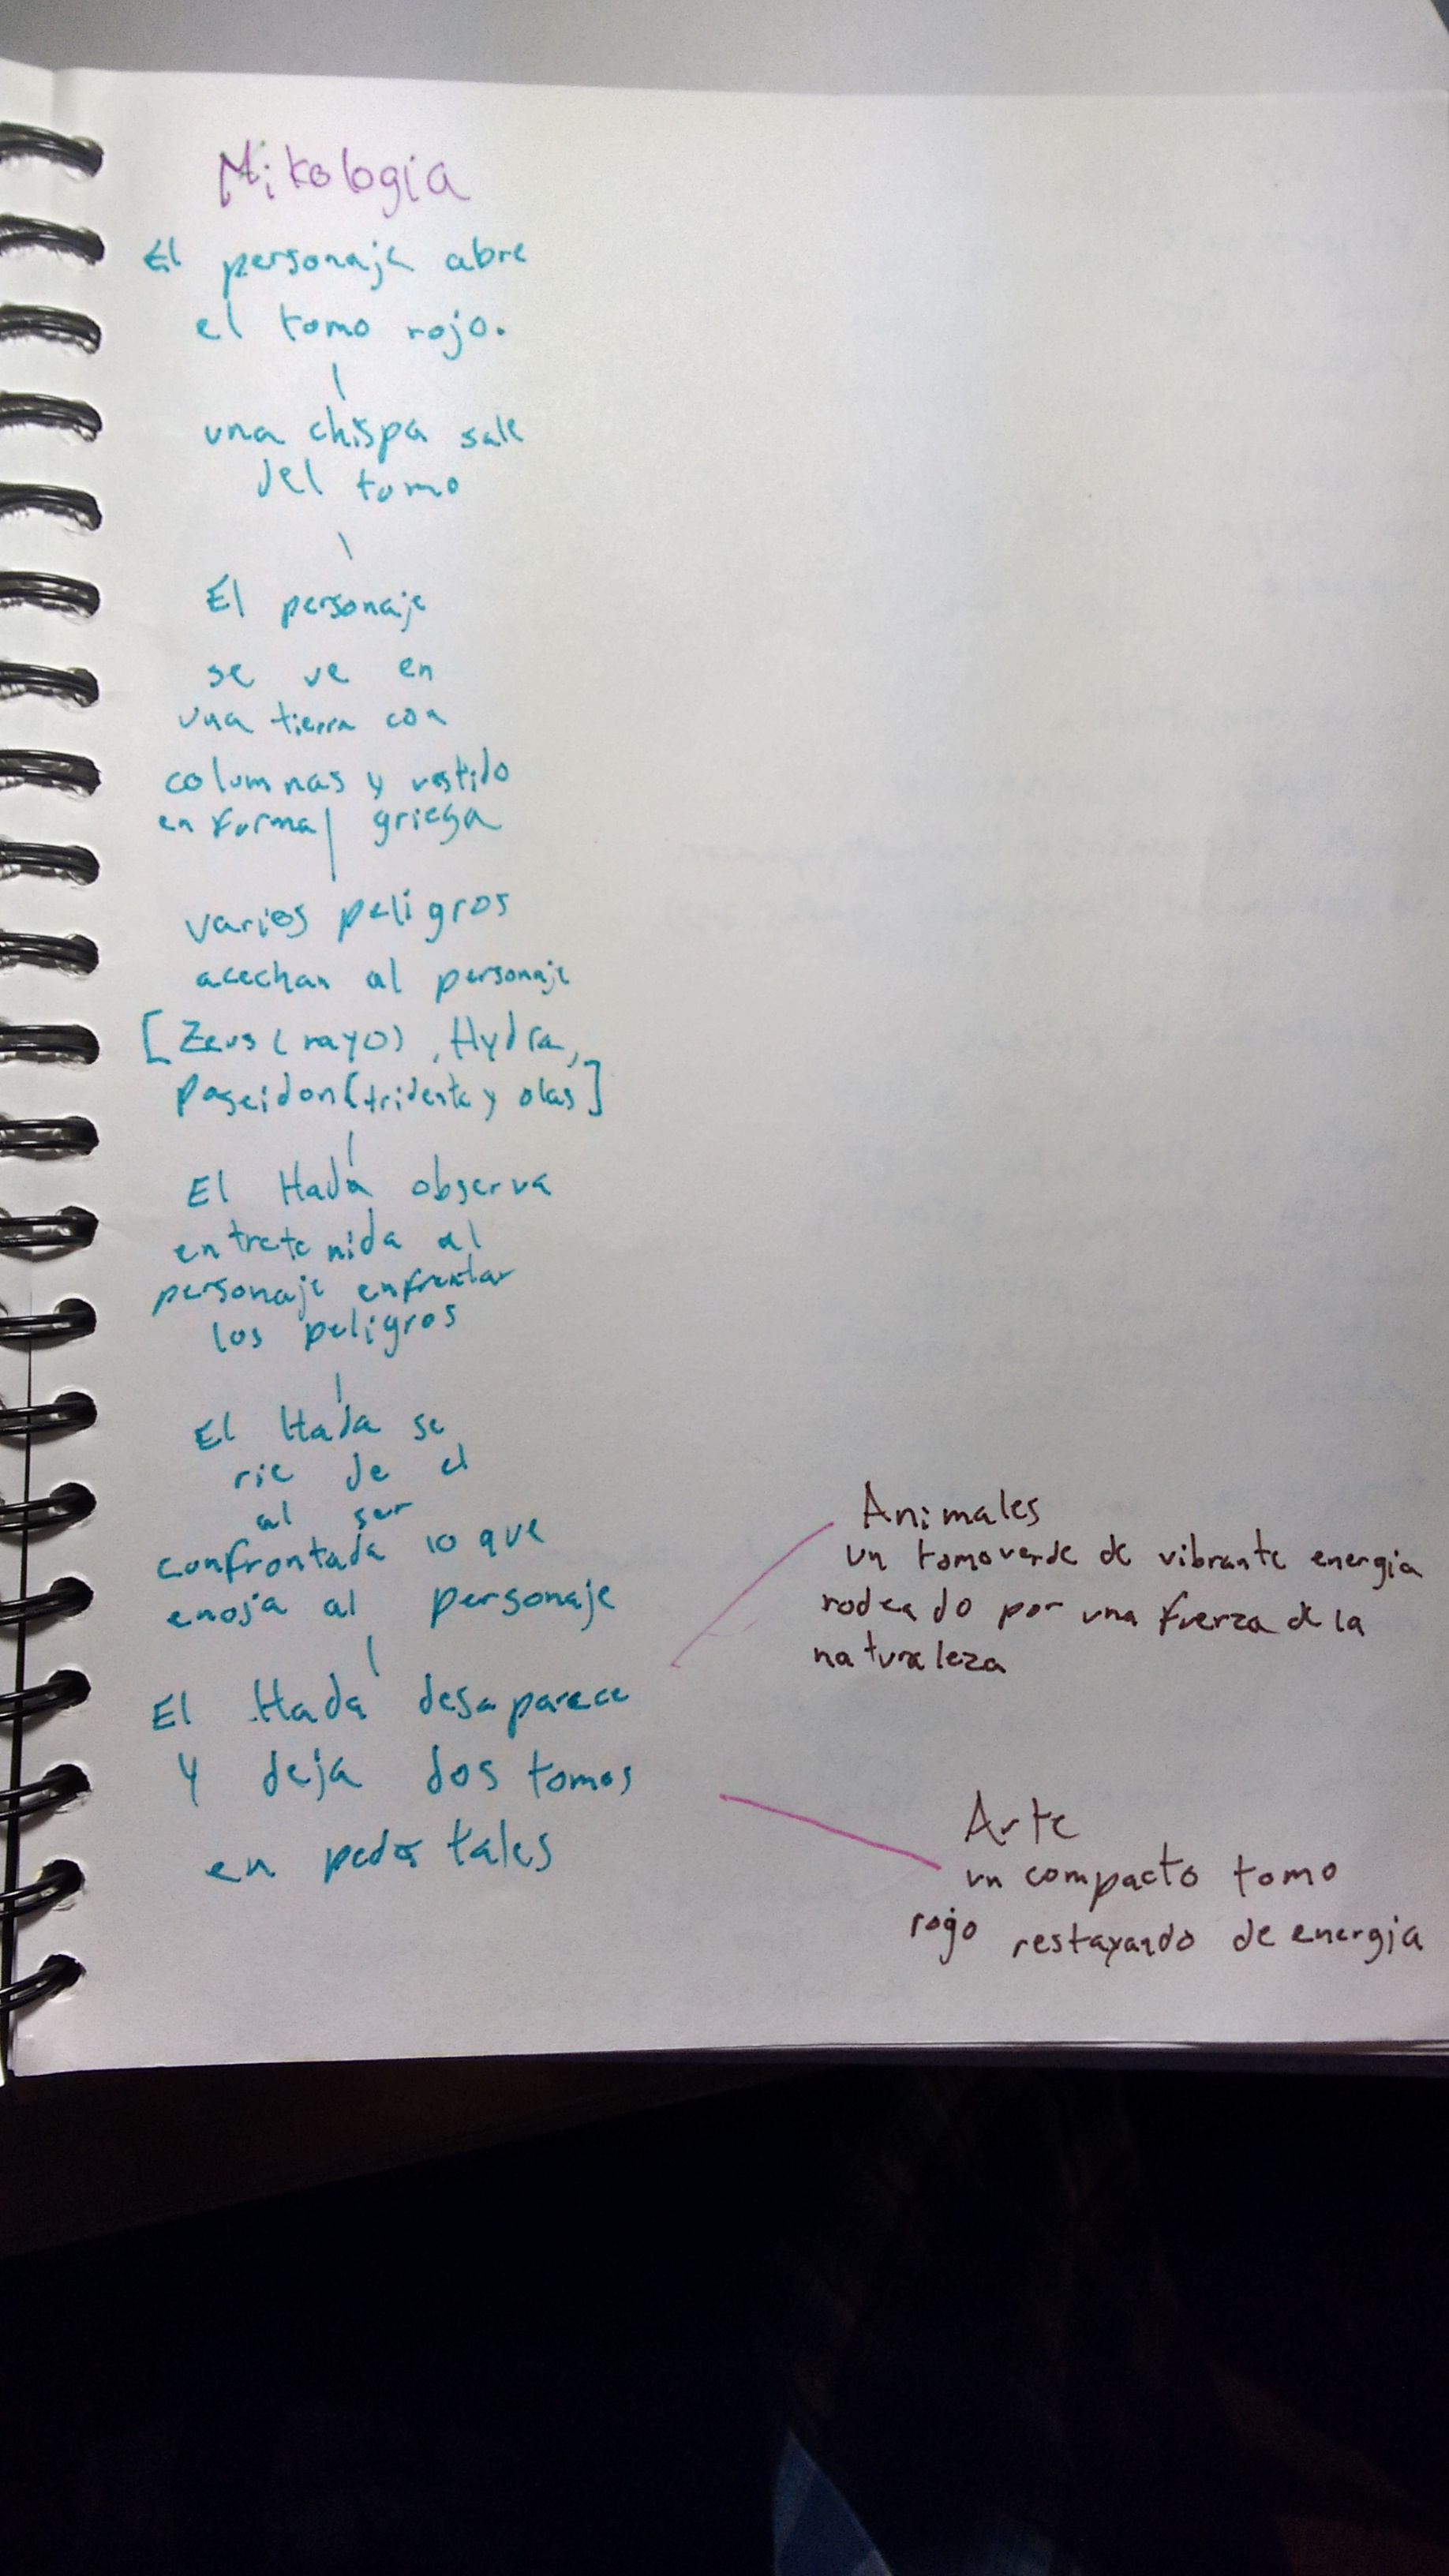 Mitologia
El personaje abre
el tomo rojo.
una chispa sale
del tomo
El personaje
se ve en
una tierra con
columnas y vestido
en forma griega
varios peligros
acechan al personaje
[Zeus (rayo), Hydra,
Poseidon [tridente y olas]
El Hada observa
entretenida al
personaje enfrentar
los peligros
El Hada se
rie de el
al ser
confrontada lo que
enoja al personaje
El Hada desaparece
y deja dos tomos
en pedestales
Animales
un tomo verde de vibrante energia
rodeado por una fuerza de la
naturaleza
Arte
un compacto tomo
rojo restayando de energia